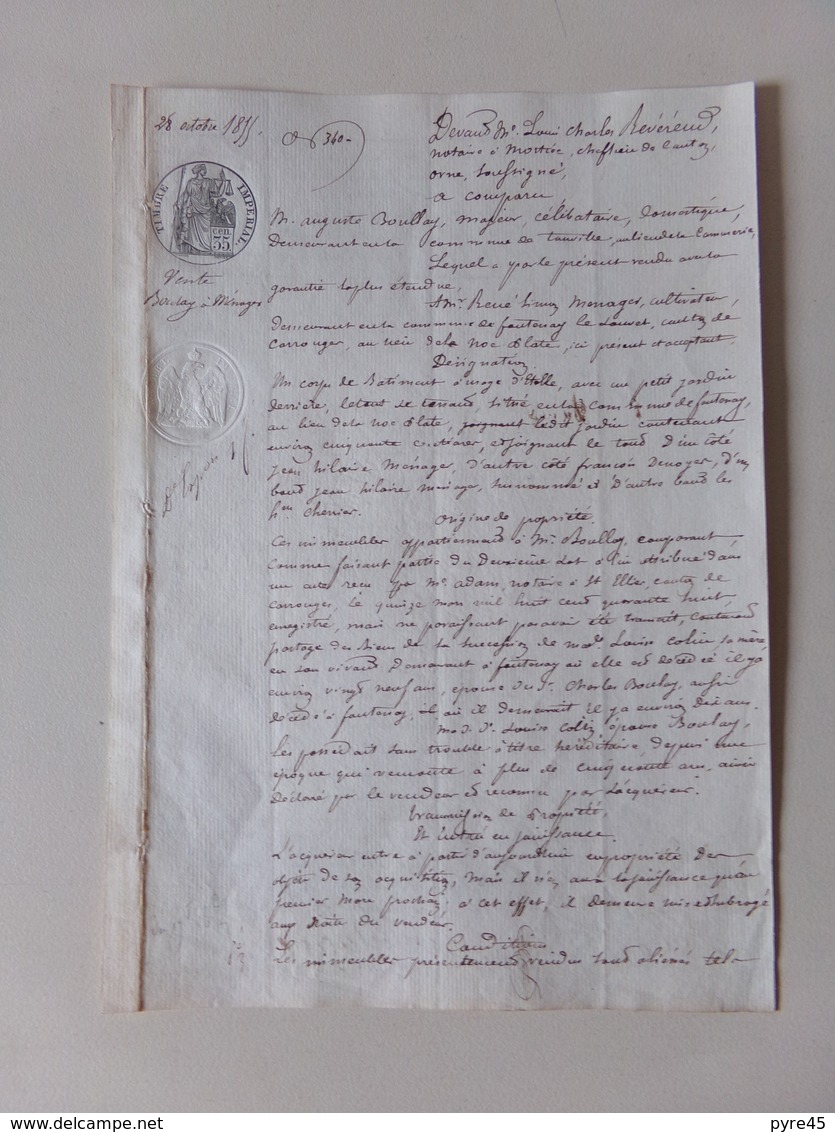 28 octobre 1855.
340
Devant Me. Louis Charles Révérend,
notaire à Mortrée, chef lieu de Canton,
orne, soussigné,
a comparu
TIMBRE IMPERIAL
55 cen.
M. auguste Boullay, majeur, célibataire, domestique,
Demeurant en la commune de tanville, au lieu de la
Lequel a par le présent vendu avec la
Vente
Boulay à Ménager
garantie la plus étendue,
A Mr. René Menager, cultivateur,
demeurant en la commune de fontenay le Louvet, canton de
Carrouges, au lieu de la Noe Plate, ici présent et acceptant,
Désignation
Un corps de Batiment à usage d'Etable, avec un petit jardin
derrière, le tout se tenant, situé en la Commune de fontenay,
au lieu de la noe Plate, joignant ledit jardin contenant
environ cinquante centiares, et joignant le tout d'un côté
Jean hilaire Ménager, d'autre côté françois Denoyer, d'un
bout Jean hilaire Menager, susnommé et D'autre bout les
Chenier.
Origine de propriété.
Ces immeubles appartiennent à Mr. Boullay, comparant,
Comme faisant partie du Deuxième Lot à lui attribué dans
un acte reçu par Me. adam, notaire à St Ellier, canton de
Carrouges, le quinze mars mil huit cent quarante huit,
enregistré, mais ne paraissant pas avoir été transcrit, contenant
partage des biens de la succession de Made. Louise Colin sa mère
en son vivant Demeurant à fontenay où elle est décédée il y a
environ vingt neuf ans, épouse du Sr. Charles Boulay, aussi
décédé à fontenay, où il demeurait il y a environ dix ans.
Louise Colin, épouse Boulay,
Les possédait sans trouble à titre héréditaire, depuis une
époque qui remonte à plus de cinquante ans, ainsi
déclaré par le vendeur et reconnu par l'acquéreur.
transmission de Propriété,
Et Entrée en jouissance.
L'acquéreur entre à partir d'aujourd'hui en propriété Des
objets de son acquisition, Mais il n'en aura la jouissance qu'au
premier Mars prochain; à cet effet, il demeure mis et subrogé
aux droits du vendeur.
Conditions
Les immeubles présentement vendus sont aliénés tels
pyre45